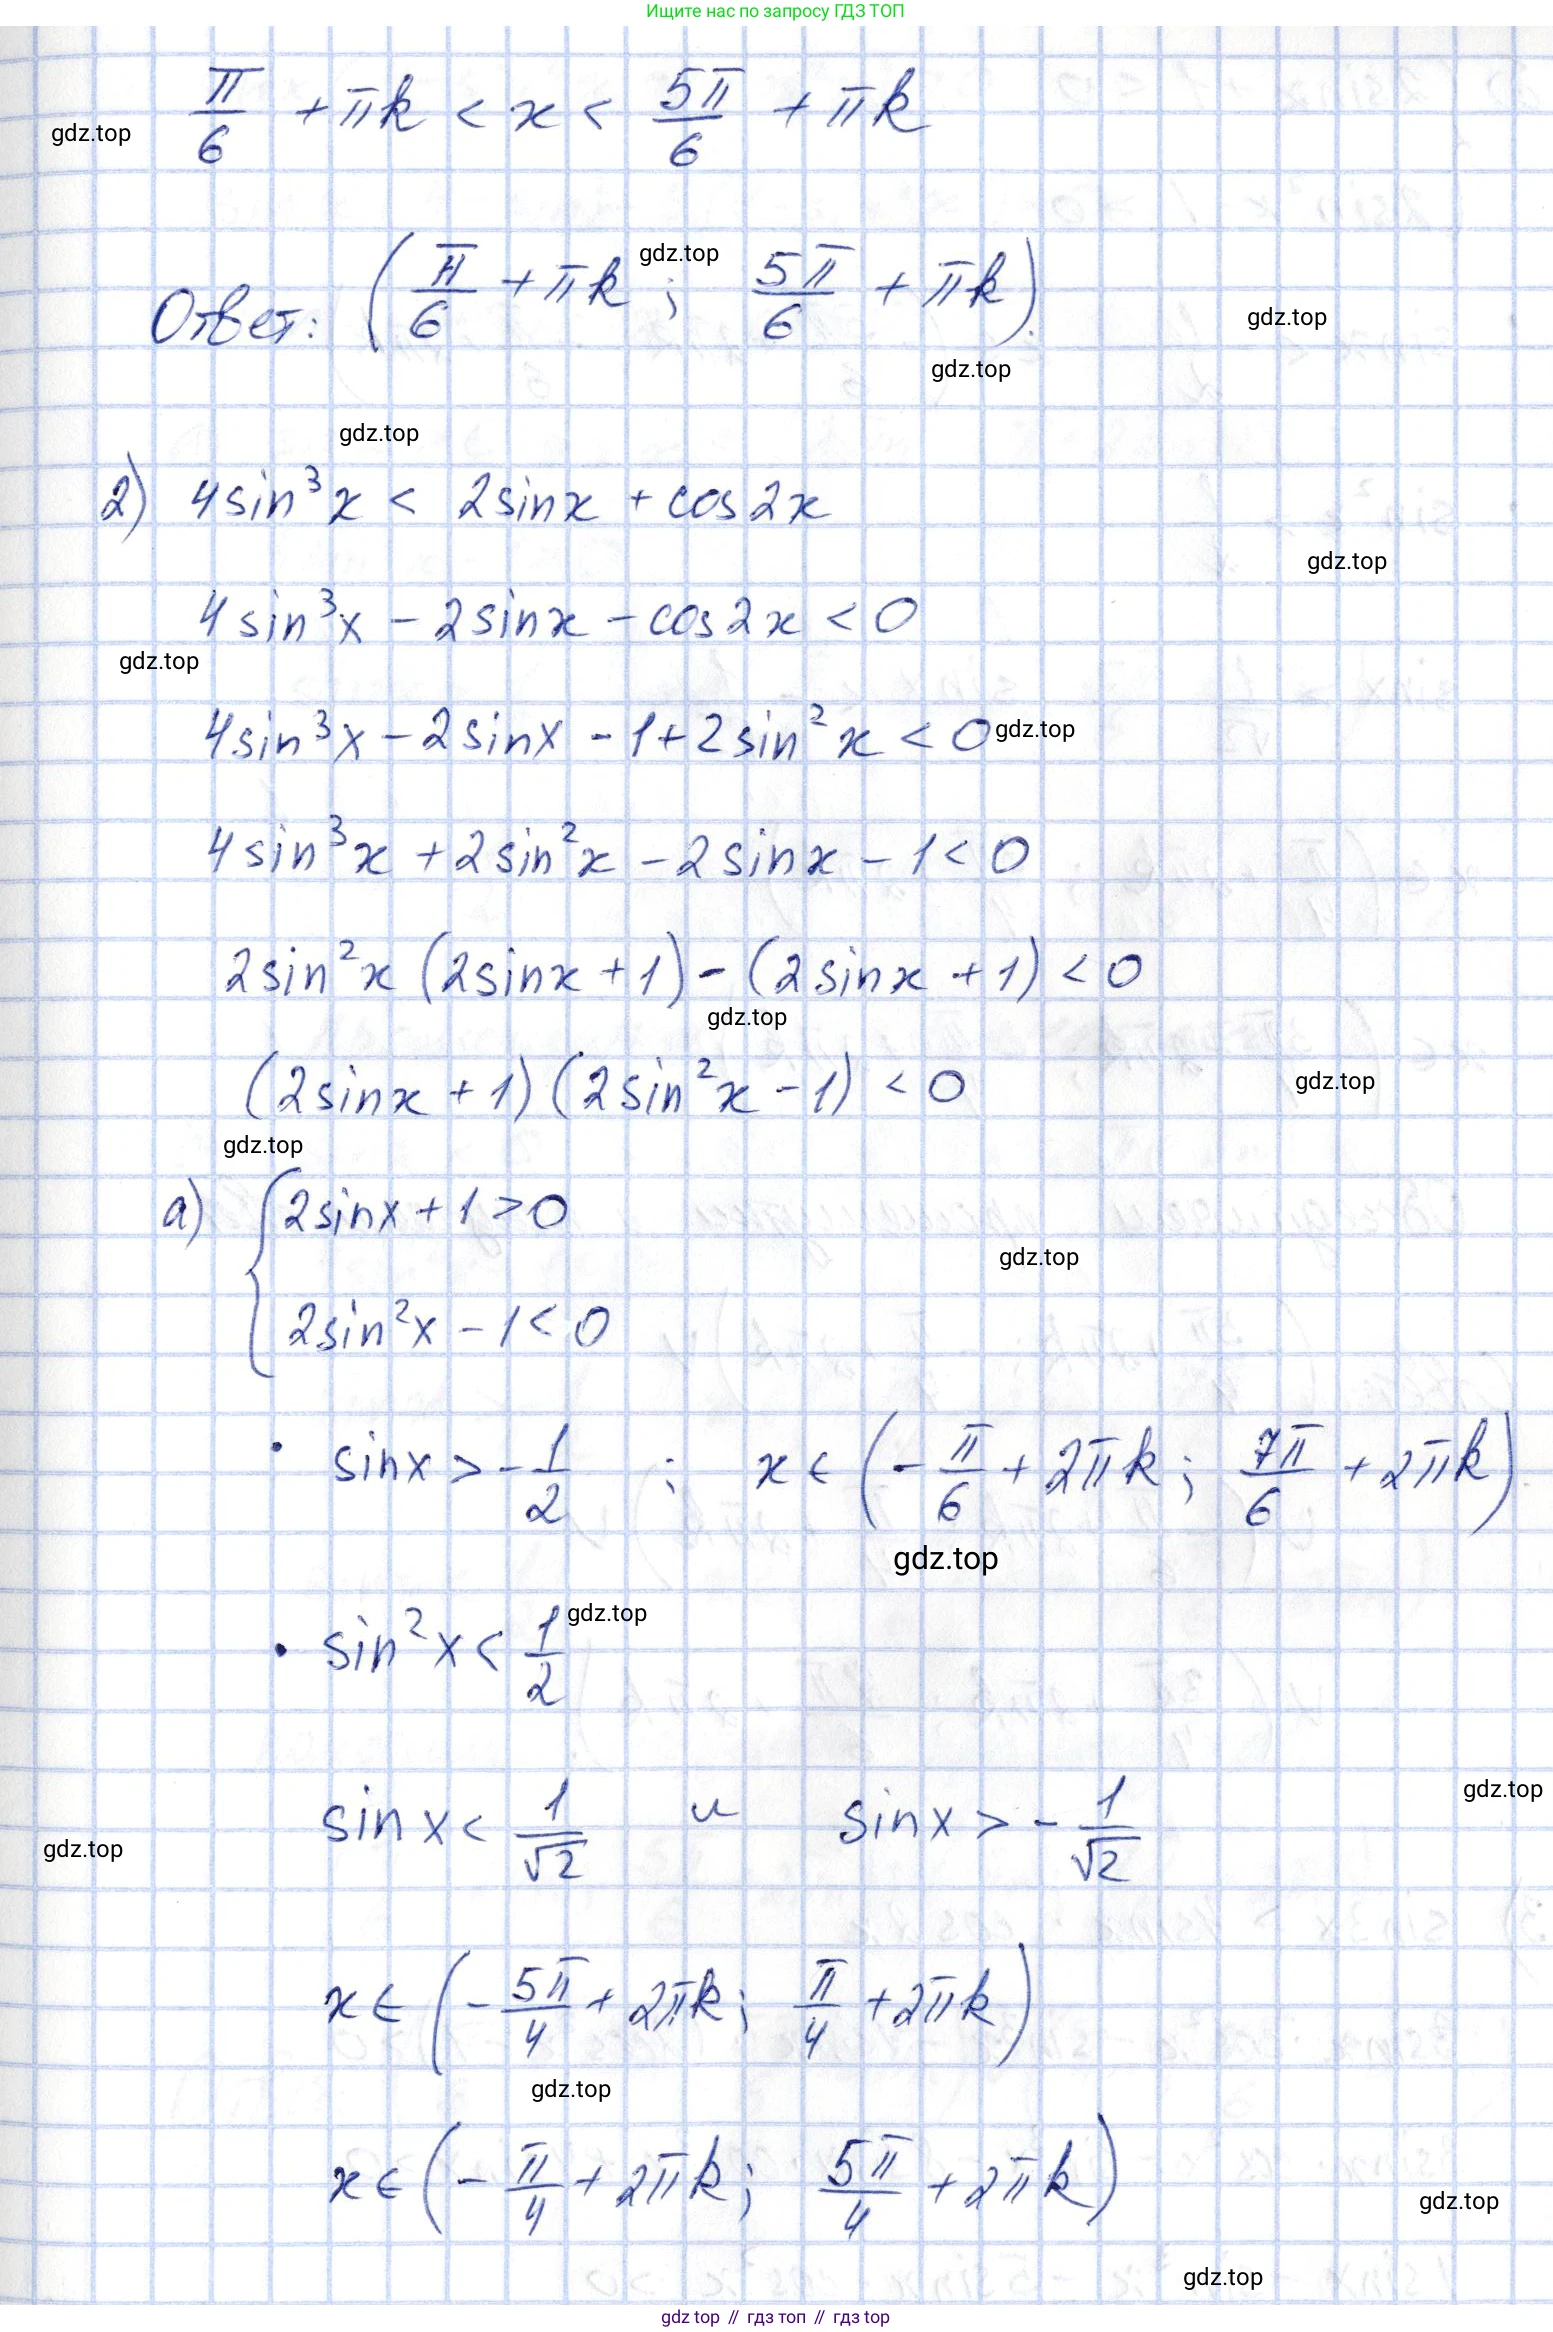 Ищите нас по запросу ГДЗ ТОП
π/6 + πk < x < 5π/6 + πk
gdz.top
Ответ: (π/6 + πk ; 5π/6 + πk).
gdz.top
gdz.top
gdz.top
gdz.top
2) 4sin³x < 2sinx + cos2x
gdz.top
4sin³x − 2sinx − cos2x < 0
gdz.top
4sin³x − 2sinx − 1 + 2sin²x < 0
gdz.top
4sin³x + 2sin²x − 2sinx − 1 < 0
2sin²x (2sinx + 1) − (2sinx + 1) < 0
gdz.top
(2sinx + 1)(2sin²x − 1) < 0
gdz.top
gdz.top
а) { 2sinx + 1 > 0
gdz.top
2sin²x − 1 < 0
• sinx > −1/2 ; x ∈ (−π/6 + 2πk ; 7π/6 + 2πk).
gdz.top
gdz.top
• sin²x < 1/2
gdz.top
sinx < 1/√2 и sinx > −1/√2
gdz.top
x ∈ (−5π/4 + 2πk ; π/4 + 2πk)
gdz.top
x ∈ (−π/4 + 2πk ; 5π/4 + 2πk)
gdz.top
gdz.top
gdz top // гдз топ // гдз top